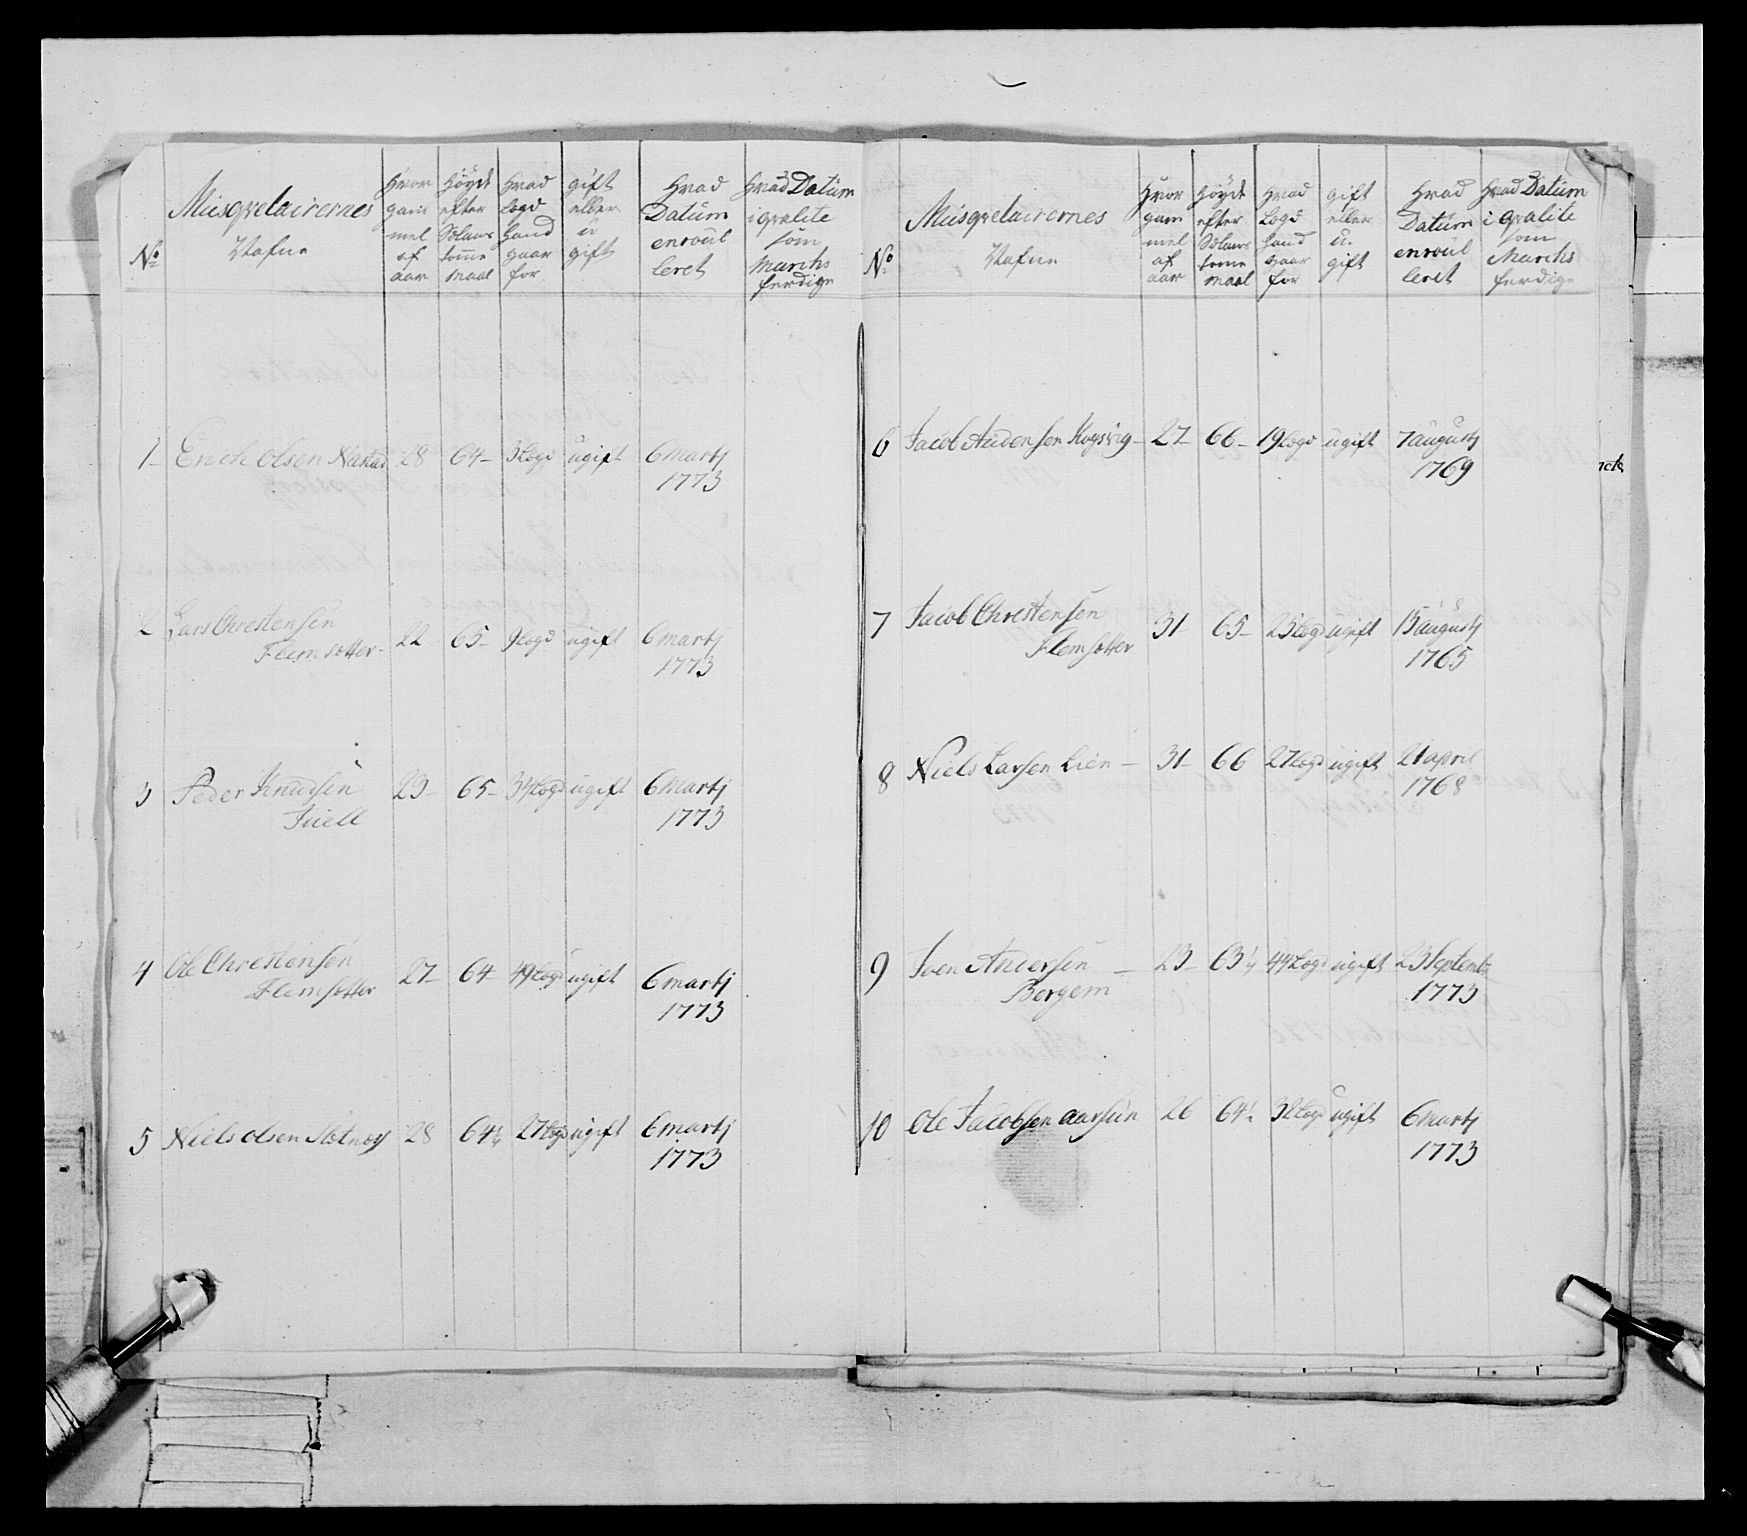 No
Musqvetairernes
Nafne
Hvor
gam
mel
af
aar
Høyde
efter
Solans
tomme
maal
Hvad
Legd
Hand
gaar
for
gift
eller
u
gift
Hvad
Datum
enroul
leret
Hvad Datum
i qvalite
som
Marchs
ferdige
1 Erich Olsen Nastad 28 64 3 Legd ugift 6 martj
1773
2 Lars Chrestensen
Flemsetter 22 65 9 Legd ugift 6 martj
1773
3 Peder Knudsen
Juell 23 65 34 Legd ugift 6 martj
1773
4 Ole Chrestensen
Flemsetter 27 64 49 Legd ugift 6 martj
1773
5 Niels Olsen 28 64½ 27 Legd ugift 6 martj
1773
No
Musqvetairernes
Nafne
Hvor
gam
mel
af
aar
Høyde
efter
Solans
tomme
maal
Hvad
Legd
Hand
gaar
for
gift
eller
u
gift
Hvad
Datum
enroul
leret
Hvad Datum
i qvalite
som
Marchs
ferdige
6 Jacob Andensen 27 66 19 Legd ugift 7 augustj
1769
7 Jacob Chrestensen
Flemsetter 31 65 23 Legd ugift 15 augustj
1765
8 Niels Larsen Lien 31 66 27 Legd ugift 21 april
1768
9 Iven Andersen
Bergem 23 63¼ 44 Legd ugift 23 Septemb
1773
10 Ole Jacobsen 26 64½ 32 Legd ugift 6 martj
1773